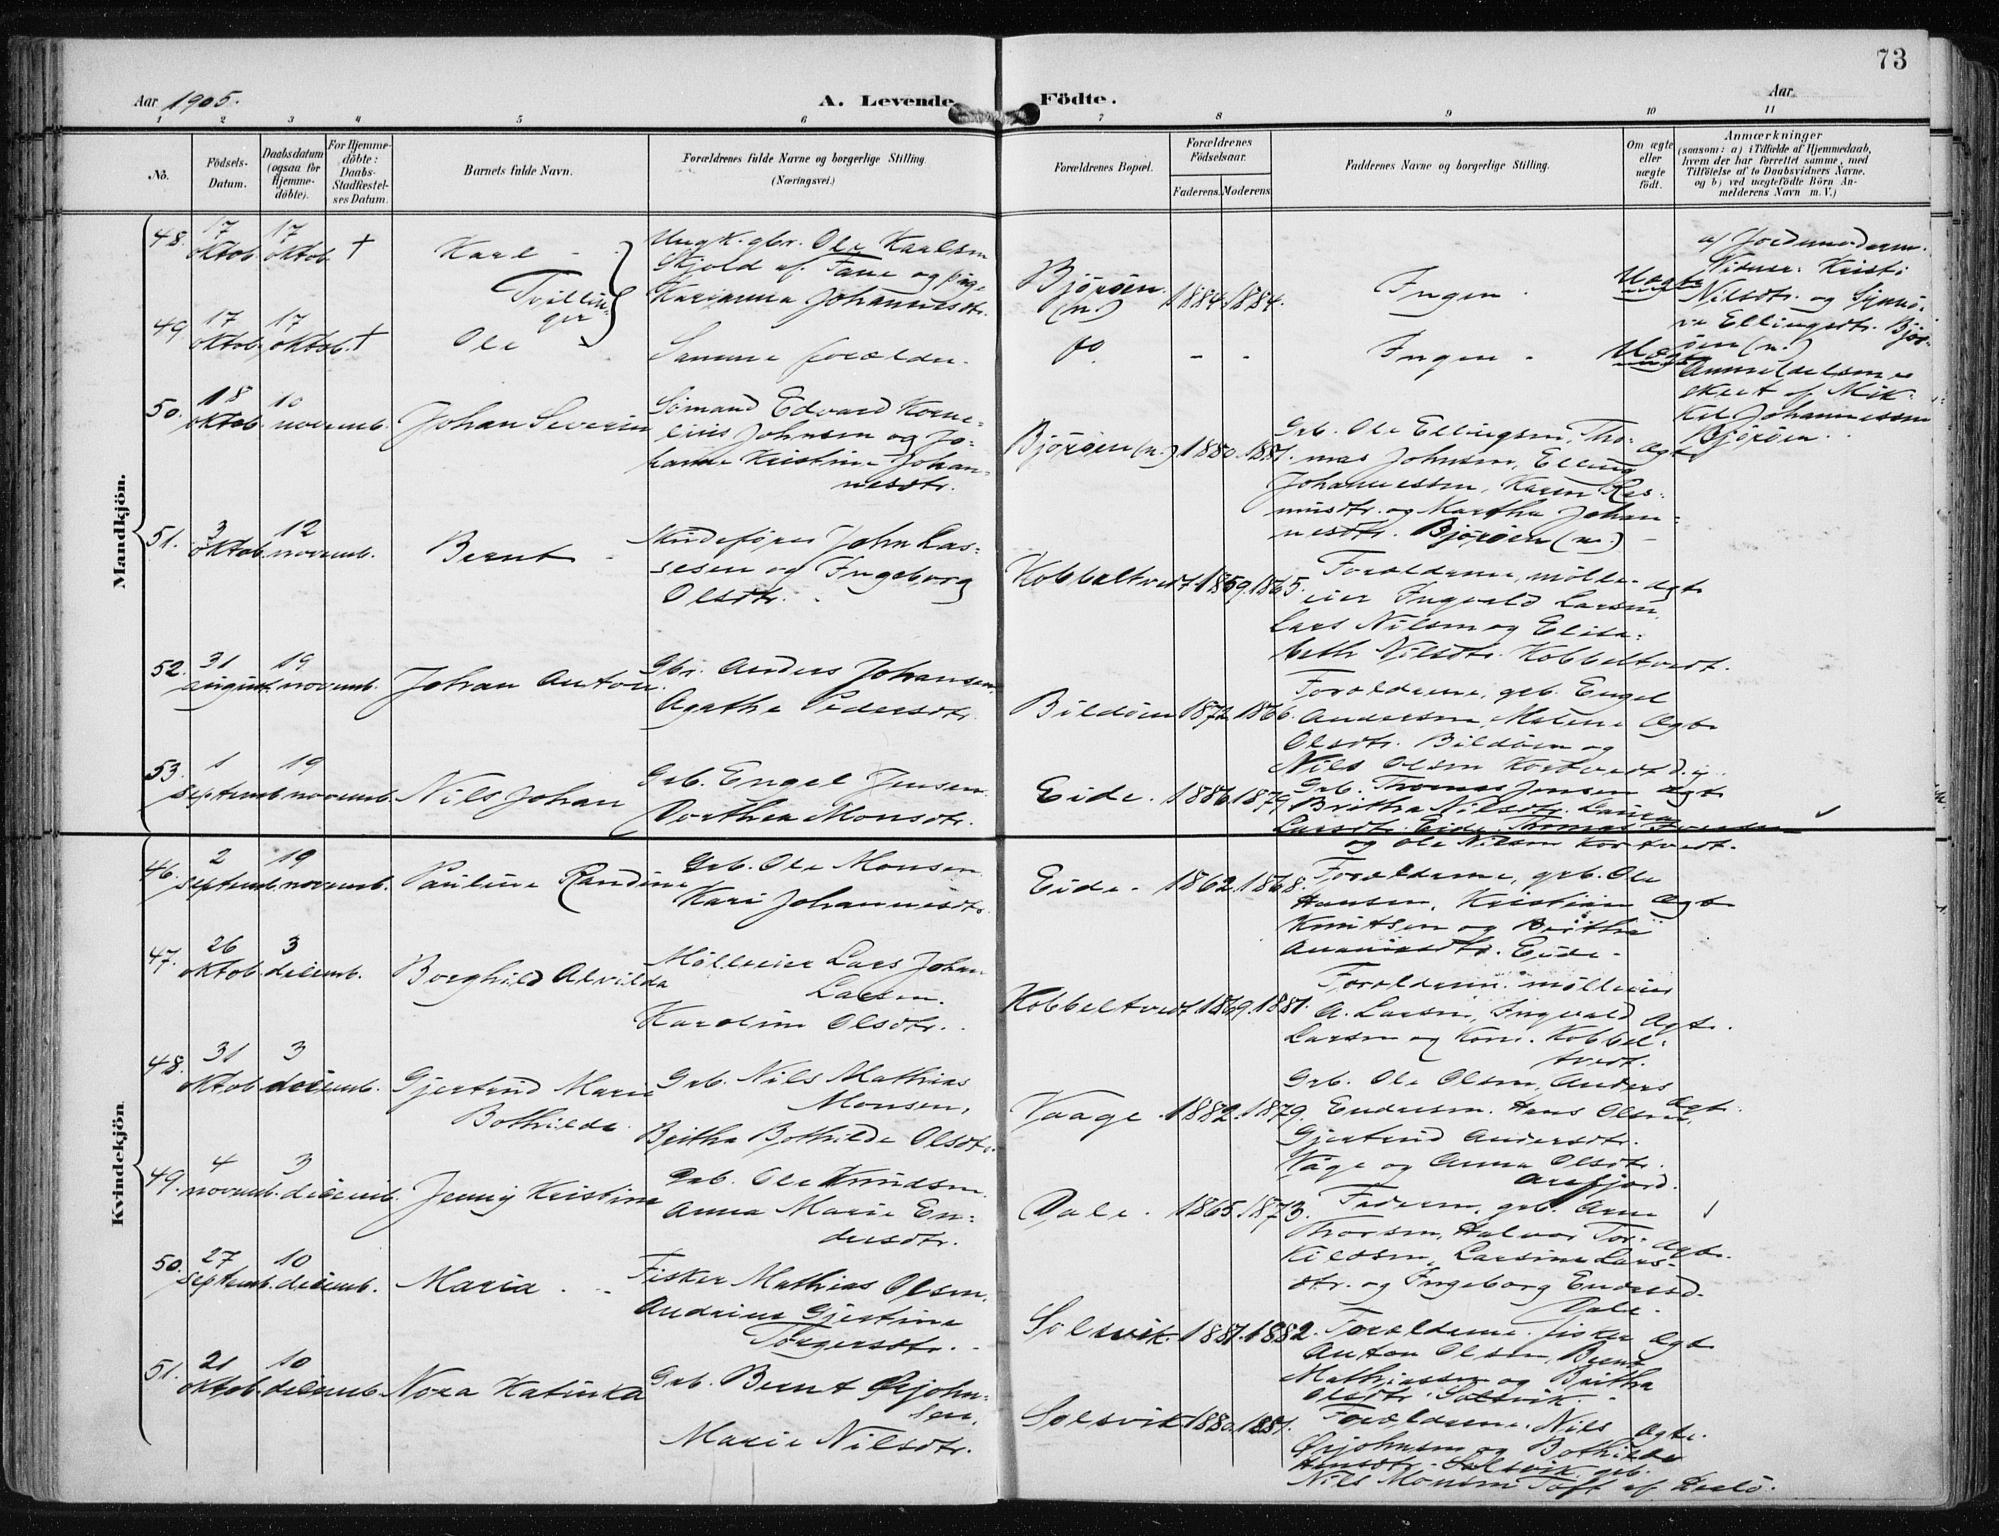 73
Aar 1905.
A. Levende Födte.
Aar
1 2 3 4 5 6 7 8 9 10 11
No.
Födsels-Datum.
Daabsdatum (ogsaa for Hjemmedöbte).
For Hjemmedöbte: Daabs-Stadfæstelses Datum.
Barnets fulde Navn.
Forældrenes fulde Navne og borgerlige Stilling. (Næringsvei.)
Forældrenes Bopæl.
Forældrenes Födselsaar.
Faderens. Moderens.
Faddernes Navne og borgerlige Stilling.
Om ægte eller uægte födt.
Anmærkninger
(saasom: a) i Tilfælde af Hjemmedaab,
hvem der har forrettet samme, med
Tilföielse af to Daabsvidners Navne,
og b) ved uægtefödte Börn Anmelderens Navn m. V.)
Mandkjön.
48. 17 oktob. 17 oktob. † Karl
Ungk. gbr. Ole Karlsen
Skjold af Fane og pige
Karianna Johannesdtr.
Tvillinger
Bjørøen (n.) 1884. 1884. Ingen. Uægte
a) Jordemoderen.
Vidner: Kristi
Nilsdtr. og Synnøve
Ellingsdtr. Bjørøen (n.)
Anmeldelsen er
skeet af Mikkel
Johannessen
Bjørøen.
49 17 oktob. 17 oktob. † Ole
Samme forældre.
do. - - Ingen - Uægte
50. 18 oktob. 10 novemb. Johan Severin
Sømand Edvard Kornelius
Johnsen og Johanne
Kristine Johannesdtr.
Bjørøen (n.) 1880. 1881. Grb. Ole Ellingsen, Thomas
Johnsen, Elling
Johannessen, Karen Rasmusdtr.
og Martha Johannesdtr.
Bjørøen (n.) Ægte
51. 3 oktob. 12 novemb. Bernt
John Lassesen
og Ingeborg
Olsdtr.
Kobbeltvedt 1859. 1865. Forældrene, mølleeier
Ingvald Larsen,
Lars Nilsen og Elisabeth
Nilsdtr. Kobbeltvedt. Ægte
52. 31 august. 19 novemb. Johan Anton
Gbr. Anders Johansen,
Agathe Pedersdtr.
Bildøen 1872. 1866. Forældrene, grb. Engel
Andersen, Malene
Olsdtr. Bildøen og
Nils Olsen Kortvedt Ægte
53. 1 septemb. 19 novemb. Nils Johan
Grb. Engel Jensen.
Dorthea Monsdtr.
Eide. 1886. 1879. Grb. Thomas Jensen Ægte
Britha Nilsdtr.
Larsdtr. Eide. Thomas
og Ole Nilsen Kortvedt.
Kvindekjön.
46. 2 septemb. 19 novemb. Pauline Randine
Grb. Ole Monsen
Kari Johannesdtr.
Eide. 1862. 1868. Forældrene, grb. Ole
Hansen, Kristian Ægte
Knutsen og Britha
Ananiasdtr. Eide.
47. 26 oktob. 3 decemb. Borghild Alvilda
Mølleeier Lars Johan
Larsen.
Karoline Olsdtr.
Kobbeltvedt 1869. 1881. Forældrene. mølleeier
A. Larsen, Ingvald Ægte.
Larsen og Kone. Kobbeltvedt.
48. 31 oktob 3 decemb. Gjertrud Marie
Bothilde.
Grb. Nils Mathias
Monsen,
Britha Bothilde Olsdtr.
Vaage. 1882. 1879. Grb. Ole Olsen, Anders
Endersen. Hans Olsen, Ægte.
Gjertrud Andersdtr.
Våge og Anna Olsdtr.
Arefjord.
49. 4 novemb. 3 decemb. Jenny Kristine
Grb. Ole Knudsen.
Anna Marie Endersdtr.
Dale. 1865. 1873. Faderen, grb. Arne
Thorsen, Halvor Torkildsen, Ægte.
Larsine Larsdtr.
og Ingeborg Endersd.
Dale.
50. 27 septemb. 10 decemb. Maria
Fisker Mathias Olsen.
Andrine Gjertine
Torgersdtr.
Solsvik. 1881. 1882. Forældrene. fisker Ægte
Anton Olsen, Bernt
Mathiassen og Britha
Olsdtr. Solsvik.
51. 21 oktob. 10 decemb. Nora Katinka
Grb. Bernt Ørjohnsen,
Marie Nilsdtr.
Solsvik 1880. 1881. Forældrene. Nils Ægte.
Ørjohnsen og Bothilde
Hansdtr. Solsvik. grb.
Nils Monsen Toft af Herlø.